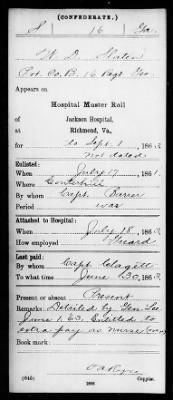 (CONFEDERATE.)
S 16 Ga.
W. D. Slaten
Pvt. Co. B, 16 Regt. Ga.
Appears on
Hospital Muster Roll
of Jackson Hospital,
at Richmond, Va.,
for to Sept. 1, 186 3
not dated
Enlisted:
When July 17, 186 1
Where
By whom Capt.
Period war
Attached to Hospital:
When July 18, 186 3
How employed Guard
Last paid:
By whom Capt. Clagett
To what time June 30, 186 3
Present or absent Present
Remarks: Detailed by Gen. Lee
June 1, 63. Entitled to
extra pay as nurse
Book mark:
Copyist.